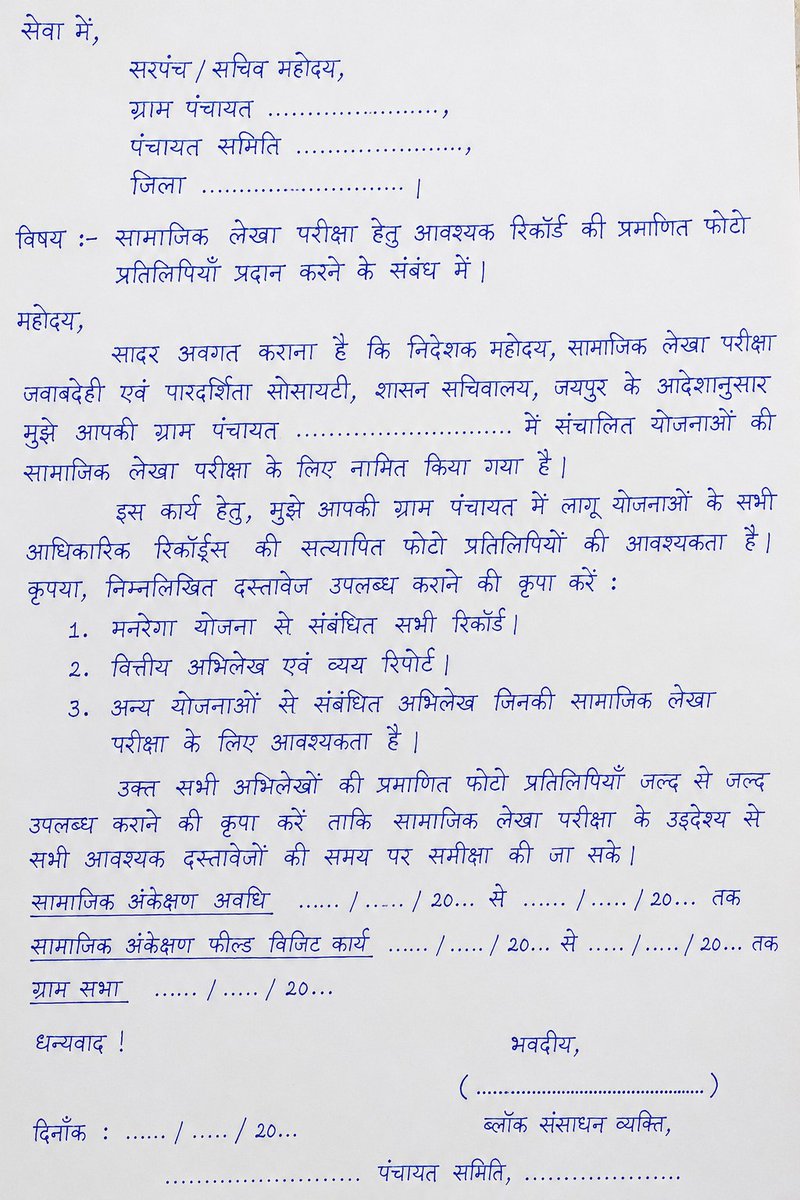 सेवा में,
सरपंच / सचिव महोदय,
ग्राम पंचायत .......................,
पंचायत समिति .......................,
जिला ........................... |
विषय :- सामाजिक लेखा परीक्षा हेतु आवश्यक रिकॉर्ड की प्रमाणित फोटो
प्रतिलिपियाँ प्रदान करने के संबंध में |
महोदय,
सादर अवगत कराना है कि निदेशक महोदय, सामाजिक लेखा परीक्षा
जवाबदेही एवं पारदर्शिता सोसायटी, शासन सचिवालय, जयपुर के आदेशानुसार
मुझे आपकी ग्राम पंचायत ............................ में संचालित योजनाओं की
सामाजिक लेखा परीक्षा के लिए नामित किया गया है |
इस कार्य हेतु, मुझे आपकी ग्राम पंचायत में लागू योजनाओं के सभी
आधिकारिक रिकॉर्ड्स की सत्यापित फोटो प्रतिलिपियों की आवश्यकता है |
कृपया, निम्नलिखित दस्तावेज उपलब्ध कराने की कृपा करें :
1. मनरेगा योजना से संबंधित सभी रिकॉर्ड |
2. वित्तीय अभिलेख एवं व्यय रिपोर्ट |
3. अन्य योजनाओं से संबंधित अभिलेख जिनकी सामाजिक लेखा
परीक्षा के लिए आवश्यकता है |
उक्त सभी अभिलेखों की प्रमाणित फोटो प्रतिलिपियाँ जल्द से जल्द
उपलब्ध कराने की कृपा करें ताकि सामाजिक लेखा परीक्षा के उद्देश्य से
सभी आवश्यक दस्तावेजों की समय पर समीक्षा की जा सके |
सामाजिक अंकेक्षण अवधि ...... / ..... / 20... से ...... / ..... / 20... तक
सामाजिक अंकेक्षण फील्ड विजिट कार्य ...... / ..... / 20... से ..... / ..... / 20... तक
ग्राम सभा ...... / ..... / 20...
धन्यवाद !
भवदीय,
( ............................................. )
दिनाँक : ...... / ..... / 20...
ब्लॉक संसाधन व्यक्ति,
.......................... पंचायत समिति, .....................